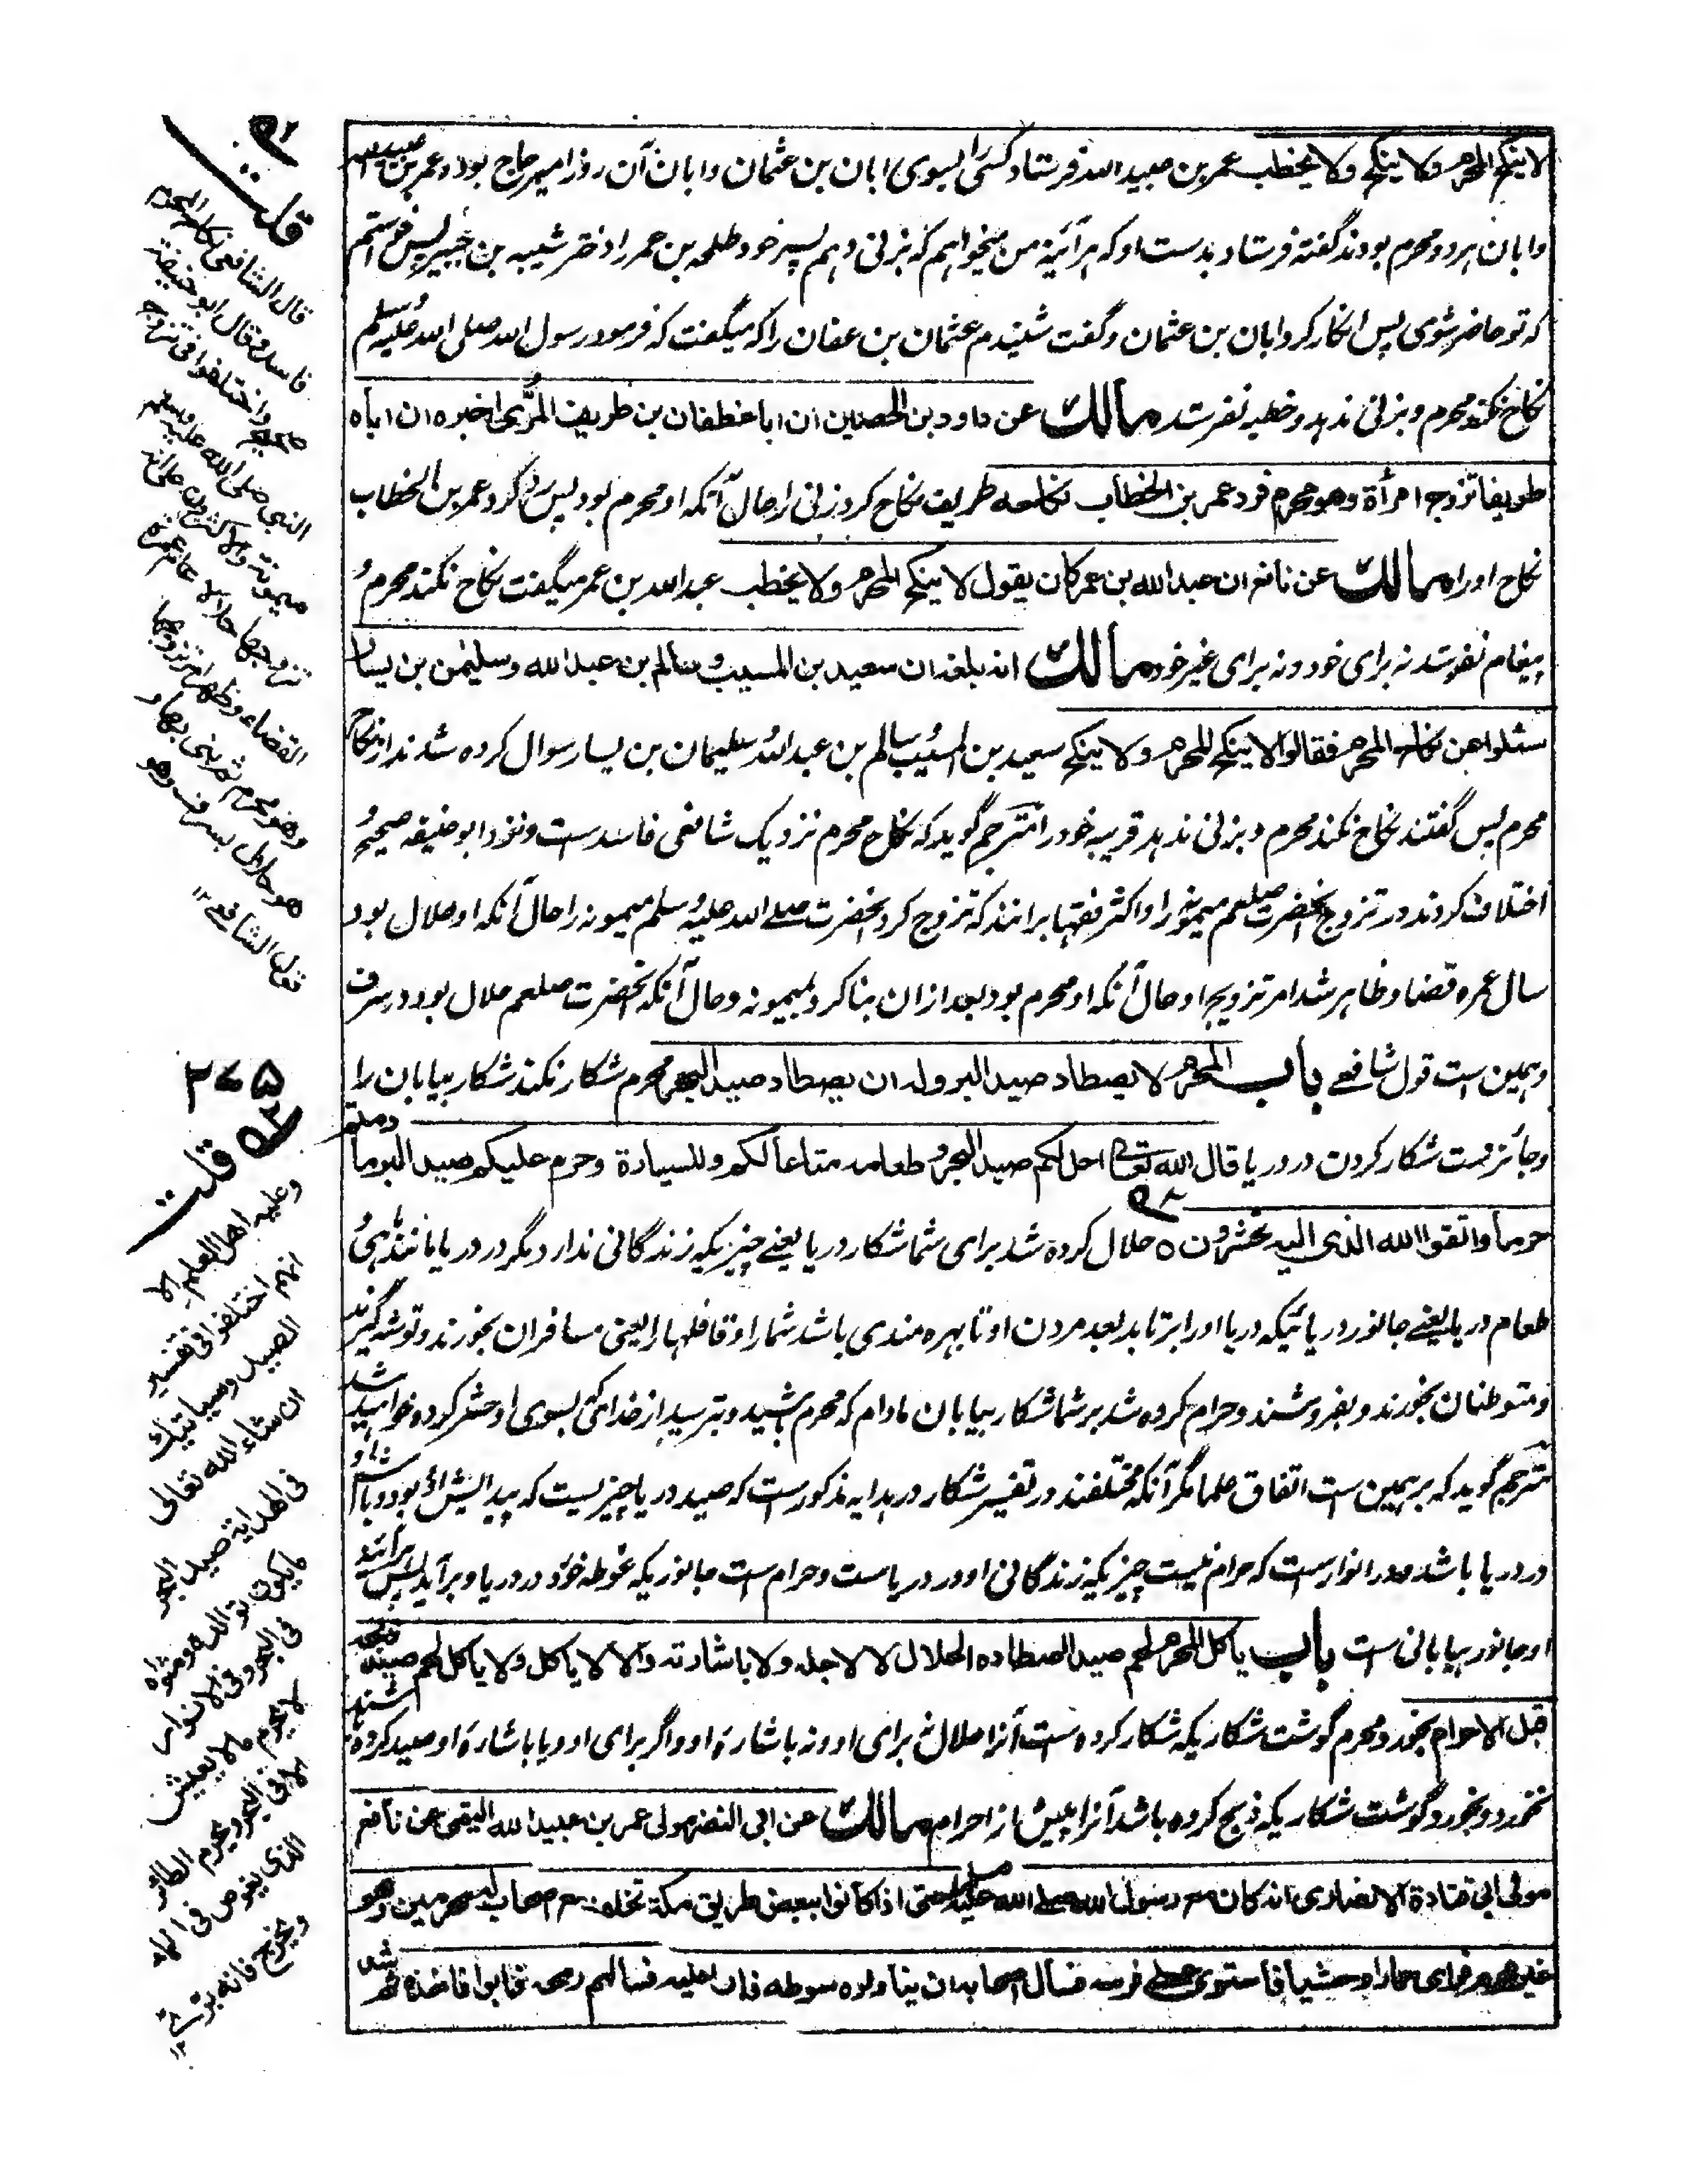 لا ينكح المحرم ولا ينكح ولا يخطب عمر بن عبید الله فرستاد کسی را بسوی ابان بن عثمان و ابان آن روز امیر حاج بود و عمر بن عبید الله
و ابان هر دو محرم بودند گفته فرستاد بدست او که هر آئینه من میخواهم که بزنی دهم پسر خود طلحه بن عمر را دختر شیبه بن جبیر پس خواستم
که تو حاضر شوی پس انکار کرد ابان بن عثمان و گفت شنیدم عثمان بن عفان را که میگفت که فرمود رسول الله صلی الله علیه وسلم
نکاح نکند محرم و بزنی ندهد و خطبه نفرستد مالك عن داود بن الحصين ان ابا غطفان بن طريف المرّي اخبره ان اباه
طريفا تزوج امرأة وهو محرم فرد عمر بن الخطاب نكاحه طریف نکاح کرد زنی را حال آنکه او محرم بود پس رد کرد عمر بن الخطاب
نکاح او را مالك عن نافع ان عبد الله بن عمر كان يقول لا ينكح المحرم ولا يخطب عبد الله بن عمر میگفت نکاح نکند محرم و
پیغام نفرستد نه برای خود و نه برای غیر خود مالك انه بلغه ان سعيد بن المسيب و سالم بن عبد الله وسليمن بن يسار
سئلوا عن نكاح المحرم فقالوا لا ينكح المحرم ولا ينكح سعید بن المسیب و سالم بن عبد الله و سلیمان بن یسار سوال کرده شدند از نکاح
محرم پس گفتند نکاح نکند محرم و بزنی ندهد قریبه خود را مترجم گوید که نکاح محرم نزدیک شافعی فاسد ست و نزد ابو حنیفه صحیح و
اختلاف کردند در تزوج آنحضرت صلعم میمونه را و اکثر فقها بر انند که تزوج کرد آنحضرت صلے الله علیه وسلم میمونه را حال آنکه او حلال بود
سال عمره قضا و ظاهر شد امر تزویج او حال آنکه او محرم بود بعد ازان بنا کرد بمیمونه و حال آنکه آنحضرت صلعم حلال بود در سرف
و همین ست قول شافعے باب المحرم لا يصطاد صيد البر وله ان يصطاد صيد البحر محرم شکار نکند شکار بیابان را
و جائز ست شکار کردن در دریا قال الله تعالى احل لكم صيد البحر و طعامه متاعا لكم وللسيارة وحرم عليكم صيد البر ما دمتم
حرما واتقوا الله الذي اليه تحشرون ٥ حلال کرده شد برای شما شکار دریا یعنے چیزیکه زندگانی ندارد مگر در دریا مانند ماهی و
طعام دریا یعنے جانور دریائیکه دریا او را برتابد بعد مردن او تا بهره مندی باشد شما را و قافلها را یعنی مسافران بخورند و توشه گیرند
و متوطنان بخورند و بفروشند و حرام کرده شد بر شما شکار بیابان مادام که محرم باشید و بترسید از خدا که بسوی او حشر کرده خواهید شد
مترجم گوید که بر همین ست اتفاق علما مگر آنکه مختلفند در تفسیر شکار در هدایه مذکور ست که صید دریا چیزیست که پیدایش او و بود و باش او
در دریا باشد و در انوار ست که حرام نیست چیزیکه زندگانی او در دریاست و حرام ست جانوریکه غوطه خورد در دریا و برآید پس
او جانور بیابانی ست باب يأكل المحرم لحم صيد اصطاده الحلال لا لاجله ولا باشارته والا لا يأكل ولا يأكل لحم صيد
قبل الاحرام بخورد محرم گوشت شکاریکه شکار کرده ست آنرا حلال نه برای او و نه باشارۀ او و اگر برای او و یا باشارۀ او صید کرده
نخورد و نخورد گوشت شکاریکه ذبح کرده باشد آنرا پیش از احرام مالك عن ابی النضر مولى عمر بن عبيد الله التيمی عن نافع
مولى ابي قتادة الانصاري انه كان مع رسول الله صلے الله عليه وسلم حتى اذا كانوا ببعض طريق مكة تخلف مع اصحاب له محرمين وهو
غير محرم فرای حمارا وحشيا فاستوى على فرسه فسأل اصحابه ان يناولوه سوطه فابوا عليه فسألهم رمحه فابوا فاخذه ثم شد
قلت
قال الشافعي نكاح المحرم
فاسد وقال ابو حنيفة
صحيح واختلفوا في تزوج
النبي صلى الله عليه وسلم
ميمونة والاكثرون على انه
تزوجها حلالا عام عمرة
القضاء وظهر امر تزوجها
وهو محرم ثم بنى بها و
هو حلال بسرف وهو
قول الشافعے ١٢
٢٧٥
قلت
وعليه اهل العلم الا
انهم اختلفوا في تفسير
الصيد وسياتيك
ان شاء الله تعالى
في الهداية صيد البحر
ما يكون توالده ومثواه
في البحر وفى الانوار
لا يحرم ما لا يعيش
الا في البحر ويحرم الطائر
الذي يغوص في الماء
ويخرج فانه بري
١٢